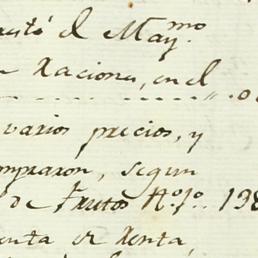 gastó el May.mo
Raciones, en el
varios precios, y
compraron, segun
de Frutos N.o 1.o 198
renta